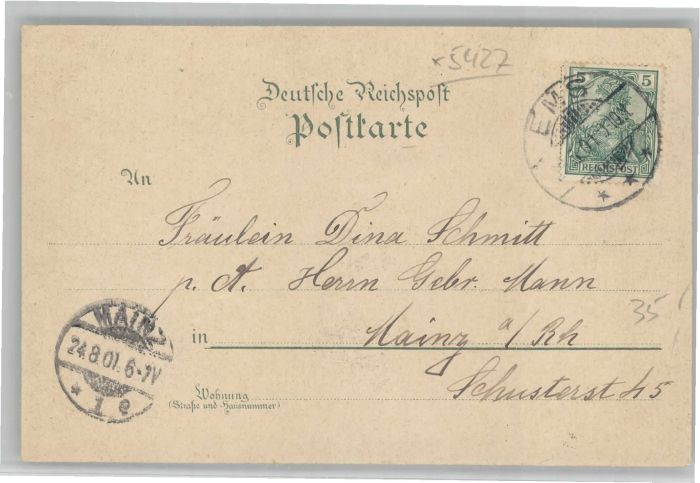 *5427
Deutsche Reichspost
Postkarte
5
REICHSPOST
EMS
An
Fräulein Dina Schmitt
p. A. Herrn Gebr. Mann
35
in Mainz a/Rh
Schusterst 45
Wohnung
(Straße und Hausnummer)
MAINZ
24.8.01. 6-7V
* 1 e